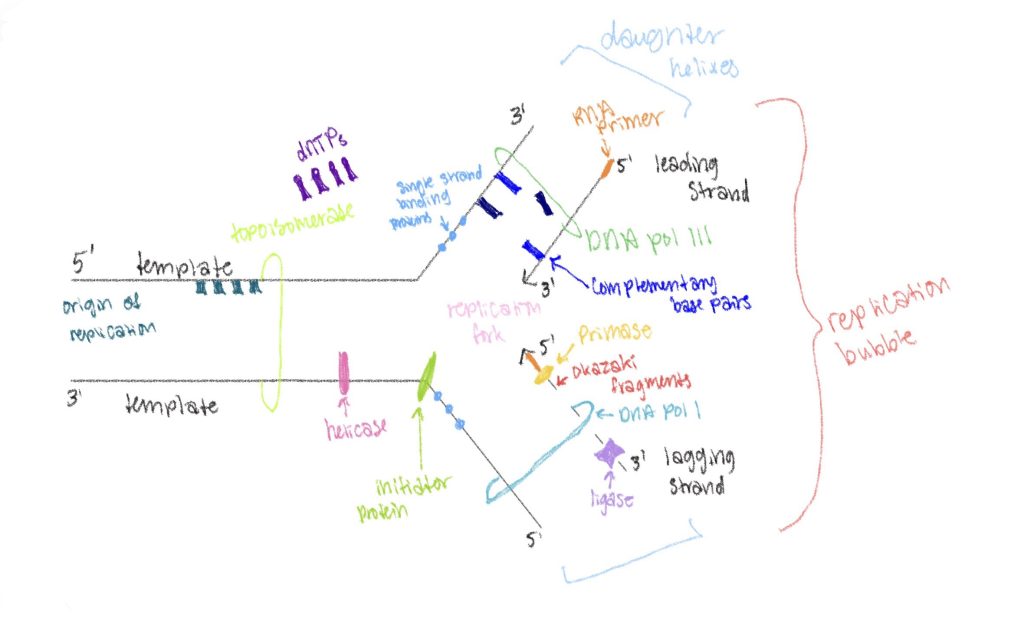 daughter
helixes
3'
RNA
primer
dNTPs
5'
leading
strand
single strand
binding
proteins
topoisomerase
DNA pol III
5'
template
3'
complementary
base pairs
origin of
replication
replication
fork
replication
bubble
5'
primase
okazaki
fragments
3'
template
DNA pol I
helicase
3'
lagging
strand
ligase
initiator
protein
5'